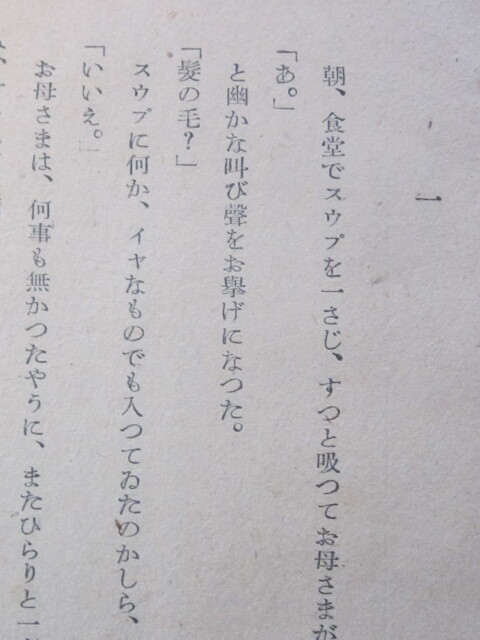 一
朝、食堂でスウプを一さじ、すつと吸つてお母さまが
「あ。」
と幽かな叫び聲をお擧げになつた。
「髮の毛?」
スウプに何か、イヤなものでも入つてゐたのかしら、
「いいえ。」
お母さまは、何事も無かつたやうに、またひらりと一